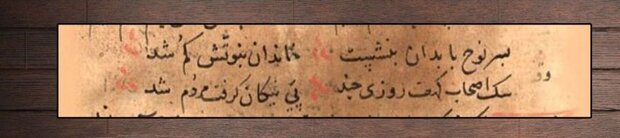 پسر نوح با بدان بنشست خاندان نبوتش گم شد
سک اصحاب کهف روزی چند پی نیکان کرفت مردم شد